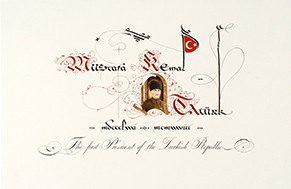 Mustafa Kemal
Atatürk
The first President of the Turkish Republic